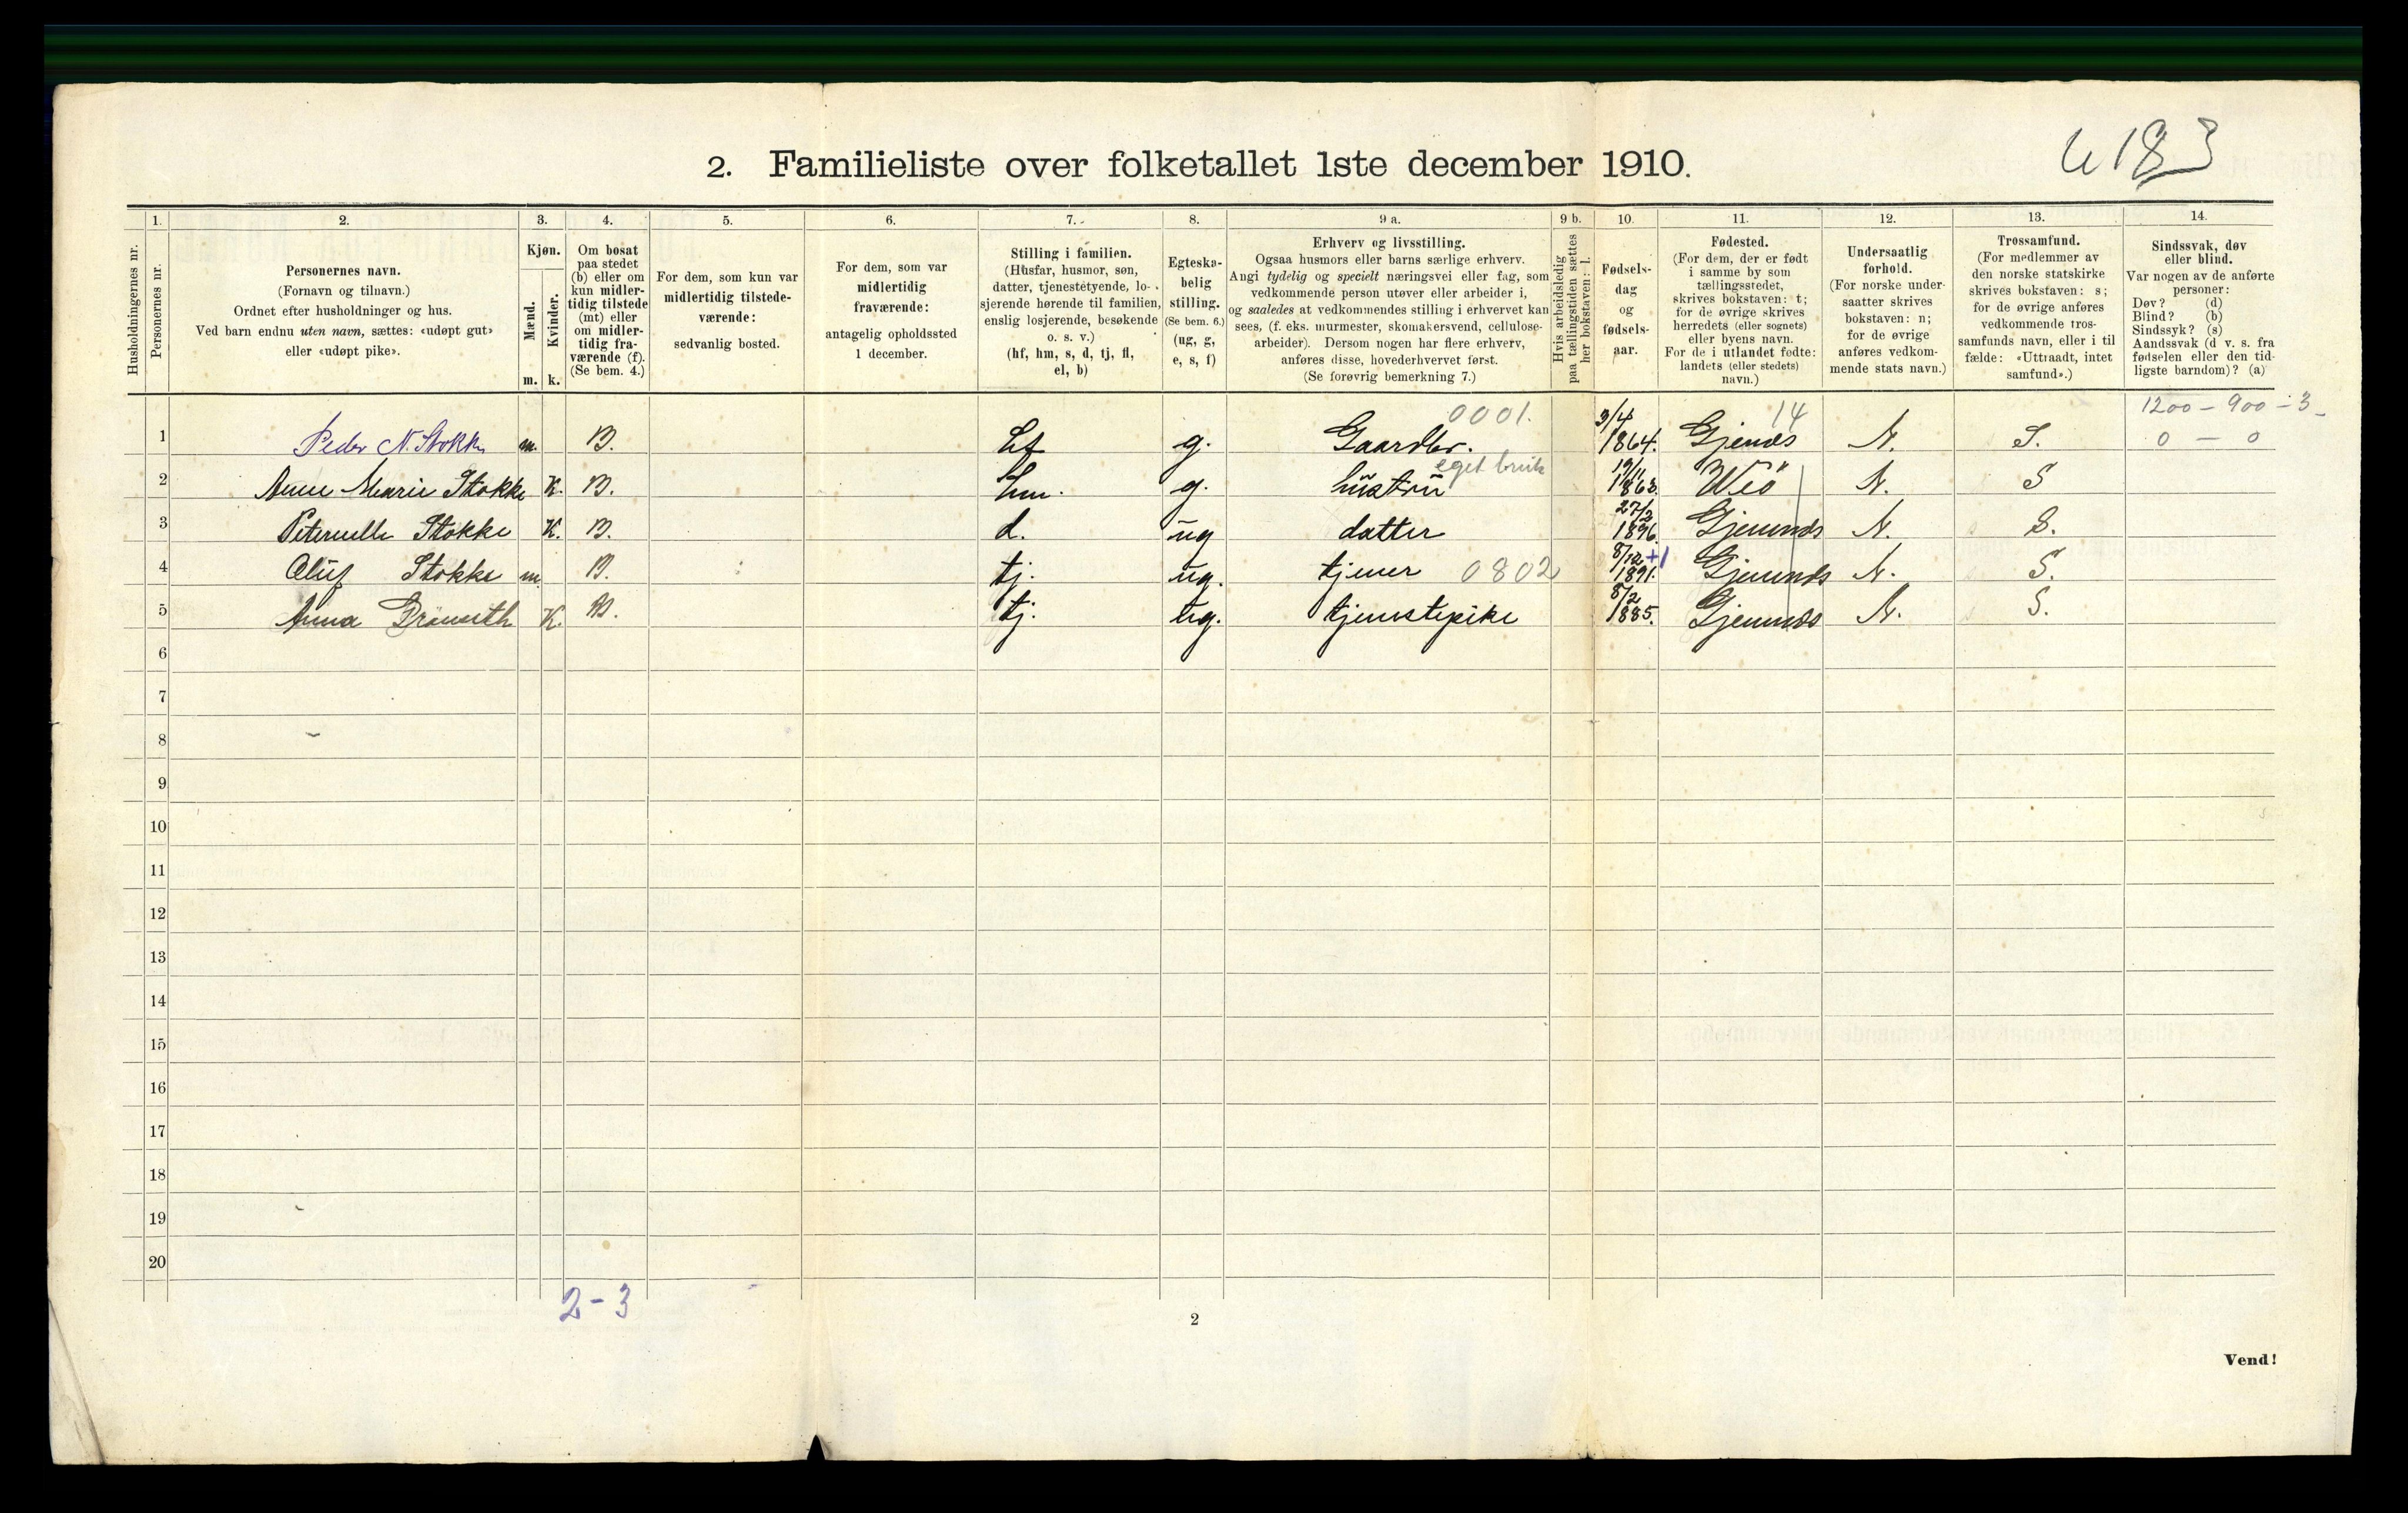 2. Familieliste over folketallet 1ste december 1910.
183
1. 2. 3. 4. 5. 6. 7. 8. 9 a. 9 b. 10. 11. 12. 13. 14.
Husholdningernes nr.
Personernes nr.
Personernes navn.
(Fornavn og tilnavn.)
Ordnet efter husholdninger og hus.
Ved barn endnu uten navn, sættes: «udøpt gut»
eller «udøpt pike».
Kjøn.
Mænd.
Kvinder.
m. k.
Om bosat
paa stedet
(b) eller om
kun midler-
tidig tilstede
(mt) eller
om midler-
tidig fra-
værende (f).
(Se bem. 4.)
For dem, som kun var
midlertidig tilstede-
værende:
sedvanlig bosted.
For dem, som var
midlertidig
fraværende:
antagelig opholdssted
1 december.
Stilling i familien.
(Husfar, husmor, søn,
datter, tjenestetyende, lo-
sjerende hørende til familien,
enslig losjerende, besøkende
o. s. v.)
(hf, hm, s, d, tj, fl,
el, b)
Egteska-
belig
stilling.
(Se bem. 6.)
(ug, g,
e, s, f)
Erhverv og livsstilling.
Ogsaa husmors eller barns særlige erhverv.
Angi tydelig og specielt næringsvei eller fag, som
vedkommende person utøver eller arbeider i,
og saaledes at vedkommendes stilling i erhvervet kan
sees, (f. eks. murmester, skomakersvend, cellulose-
arbeider). Dersom nogen har flere erhverv,
anføres disse, hovederhvervet først.
(Se forøvrig bemerkning 7.)
Hvis arbeidsledig
paa tællingstiden sættes
her bokstaven: l.
Fødsels-
dag
og
fødsels-
aar.
Fødested.
(For dem, der er født
i samme by som
tællingsstedet,
skrives bokstaven: t;
for de øvrige skrives
herredets (eller sognets)
eller byens navn.
For de i utlandet fødte:
landets (eller stedets)
navn.)
Undersaatlig
forhold.
(For norske under-
saatter skrives
bokstaven: n;
for de øvrige
anføres vedkom-
mende stats navn.)
Trossamfund.
(For medlemmer av
den norske statskirke
skrives bokstaven: s;
for de øvrige anføres
vedkommende tros-
samfunds navn, eller i til
fælde: «Uttraadt, intet
samfund».)
Sindssvak, døv
eller blind.
Var nogen av de anførte
personer:
Døv? (d)
Blind? (b)
Sindssyk? (s)
Aandssvak (d v. s. fra
fødselen eller den tid-
ligste barndom)? (a)
0001. 3/4 14 1200 - 900 - 3
1 Peder N. Stokke m. B. hf g. Gaardbr. 1864. Gjemnes N. S. 0 - 0
eget bruk 19/11
2 Anne Marie Stokke K. B. hm. g. hustru 1863. Weö N. S
27/2
3 Peternelle Stokke K. B. d. ug datter 1896. Gjemnæs N. S.
8/12 +1
4 Oluf Stokke m B. tj. ug. tjener 0802 1891. Gjemnæs N. S.
8/2
5 Anna K. B. tj. ug. tjenstepike 1885. Gjemnæs N. S.
6
7
8
9
10
11
12
13
14
15
16
17
18
19
20
2-3
2
Vend!